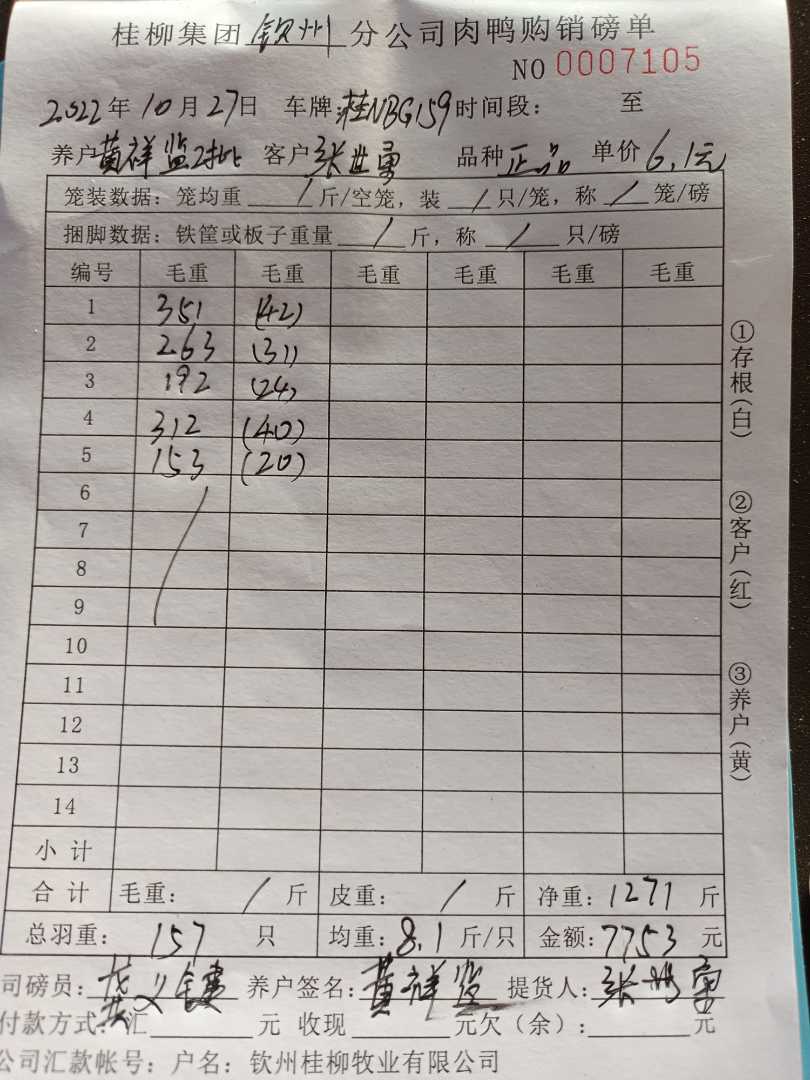 桂柳集团钦州分公司肉鸭购销磅单
NO 0007105
2022年10月27日 车牌:桂NBG159 时间段: 至
养户黄祥监2批 客户张世勇 品种正品 单价6.1元
笼装数据: 笼均重 / 斤/空笼, 装 / 只/笼, 称 / 笼/磅
捆脚数据: 铁筐或板子重量 / 斤, 称 / 只/磅
编号 毛重 毛重 毛重 毛重 毛重 毛重
1 351 (42)
2 263 (31)
3 192 (24)
4 312 (40)
5 153 (20)
6
7
8
9
10
11
12
13
14
小计
合计 毛重: / 斤 皮重: / 斤 净重: 1271 斤
总羽重: 157 只 均重: 8.1 斤/只 金额: 7753 元
司磅员: 养户签名: 黄祥监 提货人: 张世勇
付款方式: 汇 元 收现 元欠(余): 元
公司汇款帐号: 户名: 钦州桂柳牧业有限公司
①存根(白)
②客户(红)
③养户(黄)